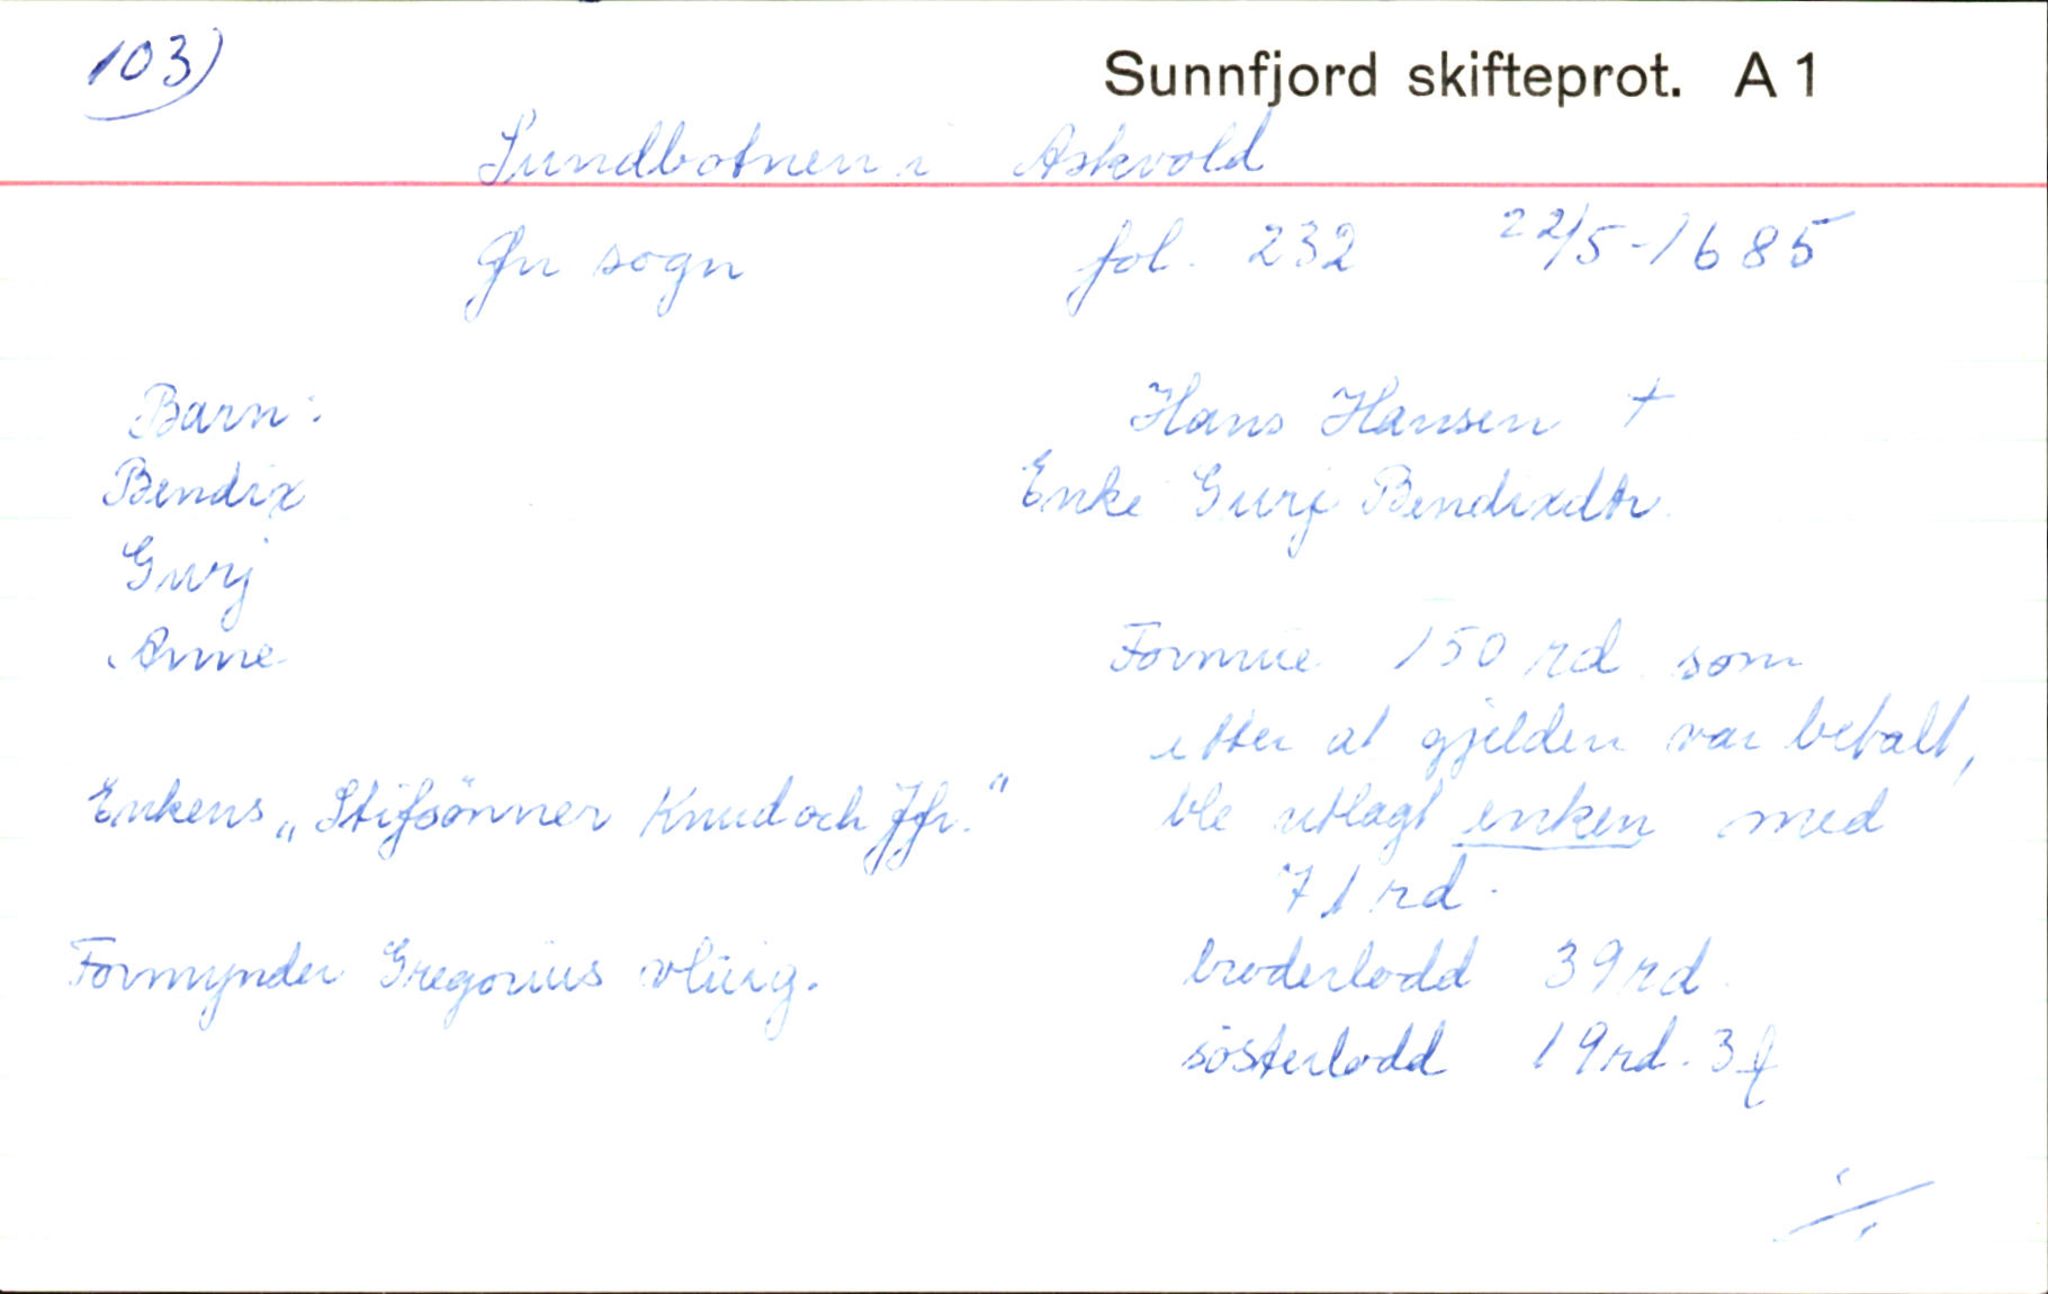 103)
Sunnfjord skifteprot. A 1
Sundbotnen i Askvold
sogn fol. 232 22/5-1685
Barn:
Bendix
Gurj
Anne
Enkens „Stifsönner Knud och
Formynder Gregorius
Hans Hansen †
Enke Gurj Bendixdtr.
Formue 150 rd som
etter at gjelden var betalt,
ble utlagt enken med
71 rd.
broderlodd 39 rd.
sösterlodd 19 rd. 3
./.